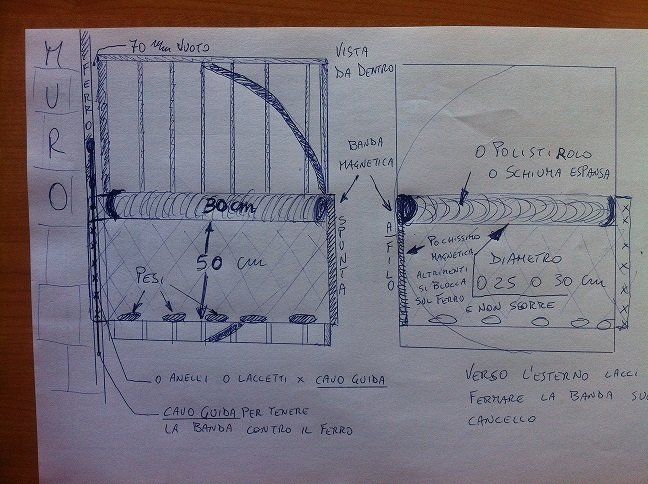 MURO
FERRO
70 mm VUOTO
VISTA
DA DENTRO
BANDA
MAGNETICA
30 cm
50 cm
PESI
SPUNTA
A FILO
O POLISTIROLO
O SCHIUMA ESPANSA
POCHISSIMO
MAGNETICA
ALTRIMENTI
SI BLOCCA
SUL FERRO
E NON SCORRE
DIAMETRO
O 25 O 30 cm
O ANELLI O LACCETTI X CAVO GUIDA
CAVO GUIDA PER TENERE
LA BANDA CONTRO IL FERRO
VERSO L'ESTERNO LACCI
FERMARE LA BANDA SU
CANCELLO